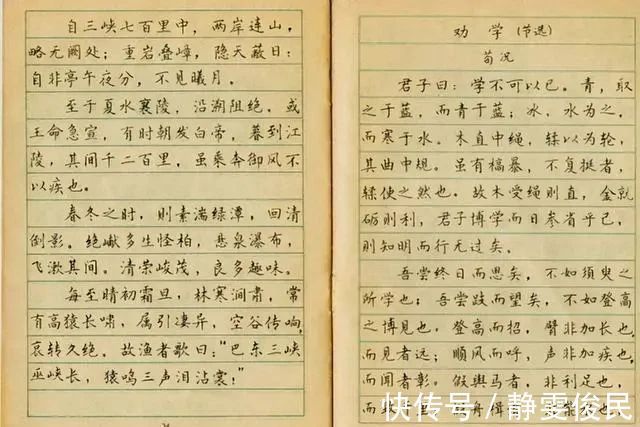 自三峡七百里中，两岸连山，
略无阙处；重岩叠嶂，隐天蔽日：
自非亭午夜分，不见曦月。
至于夏水襄陵，沿溯阻绝。或
王命急宣，有时朝发白帝，暮到江
陵，其间千二百里，虽乘奔御风不
以疾也。
春冬之时，则素湍绿潭，回清
倒影。绝巘多生怪柏，悬泉瀑布，
飞漱其间。清荣峻茂，良多趣味。
每至晴初霜旦，林寒涧肃，常
有高猿长啸，属引凄异，空谷传响，
哀转久绝。故渔者歌曰："巴东三峡
巫峡长，猿鸣三声泪沾裳！"
劝学（节选）
荀况
君子曰：学不可以已。青，取
之于蓝，而青于蓝；冰，水为之，
而寒于水。木直中绳，𫐓以为轮，
其曲中规。虽有槁暴，不复挺者，
𫐓使之然也。故木受绳则直，金就
砺则利，君子博学而日参省乎己，
则知明而行无过矣。
吾尝终日而思矣，不如须臾之
所学也；吾尝跂而望矣，不如登高
之博见也。登高而招，臂非加长也，
而见者远；顺风而呼，声非加疾也，
而闻者彰。假舆马者，非利足也，
而
快传号/静雯俊民